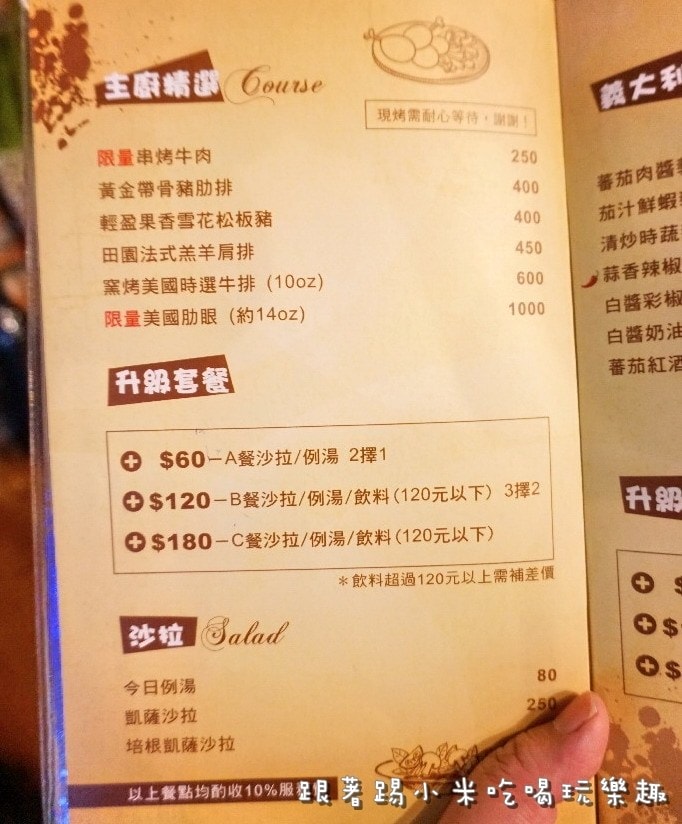 主廚精選 Course
現烤需耐心等待，謝謝！
限量串烤牛肉 250
黃金帶骨豬肋排 400
輕盈果香雪花松板豬 400
田園法式羔羊肩排 450
窯烤美國時選牛排 (10oz) 600
限量美國肋眼 (約14oz) 1000
升級套餐
$60－A餐沙拉/例湯 2擇1
$120－B餐沙拉/例湯/飲料(120元以下) 3擇2
$180－C餐沙拉/例湯/飲料(120元以下)
＊飲料超過120元以上需補差價
沙拉 Salad
今日例湯 80
凱薩沙拉 250
培根凱薩沙拉
以上餐點均酌收10%服
義大利
蕃茄肉醬
茄汁鮮蝦
清炒時蔬
蒜香辣椒
白醬彩椒
白醬奶油
蕃茄紅酒
升級
$
$
$
跟著踢小米吃喝玩樂趣